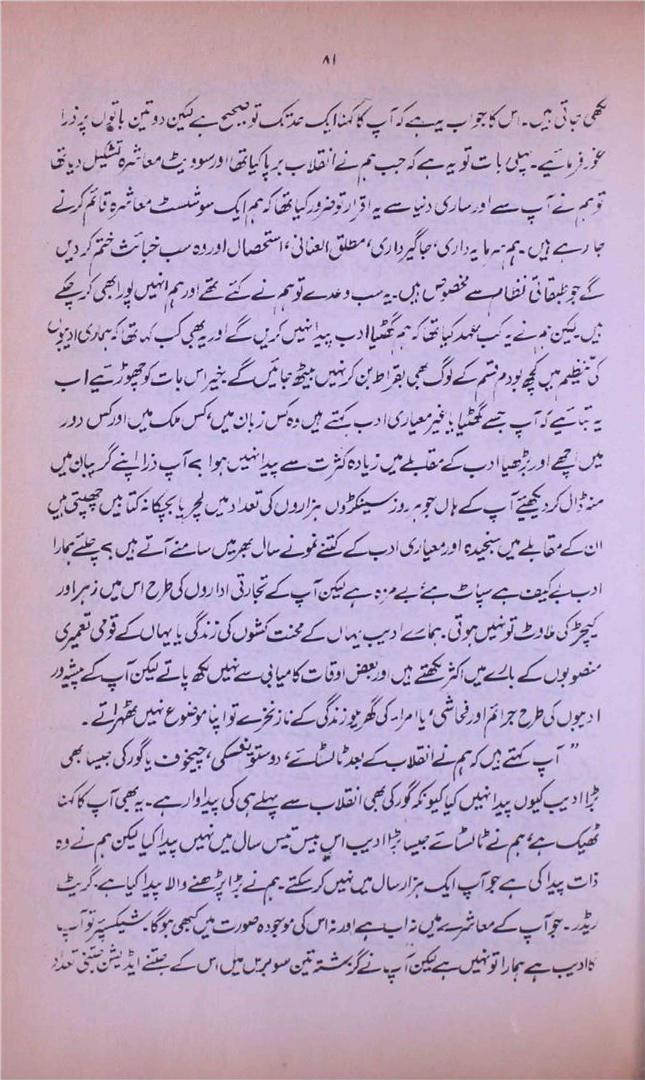 ۸۱
لکھی جاتی ہیں۔ اس کا جواب یہ ہے کہ آپ کا کہنا ایک حد تک تو صحیح ہے لیکن دو تین باتوں پر ذرا
غور فرمائیے۔ پہلی بات تو یہ ہے کہ جب ہم نے انقلاب برپا کیا تھا اور سوویٹ معاشرہ تشکیل دیا تھا
تو ہم نے آپ سے اور ساری دنیا سے یہ اقرار تو ضرور کیا تھا کہ ہم ایک سوشلسٹ معاشرہ قائم کرنے
جا رہے ہیں۔ ہم سرمایہ داری، جاگیرداری، مطلق العنانی، استحصال اور وہ سب خبائث ختم کر دیں
گے جو طبقاتی نظام سے مخصوص ہیں۔ یہ سب وعدے تو ہم نے کئے تھے اور ہم انہیں پورا بھی کر چکے
ہیں۔ لیکن ہم نے یہ کب عہد کیا تھا کہ ہم گھٹیا ادب پیدا نہیں کریں گے اور یہ بھی کب کہا تھا کہ ہماری ادیبوں
کی تنظیم میں کچھ بودم قسم کے لوگ بھی بقراط بن کر نہیں بیٹھ جائیں گے۔ خیر اس بات کو چھوڑئیے اب
یہ بتائیے کہ آپ جسے گھٹیا یا غیر معیاری ادب کہتے ہیں وہ کس زبان میں، کس ملک میں اور کس دور
میں اچھے اور بڑھیا ادب کے مقابلے میں زیادہ کثرت سے پیدا نہیں ہوا؟ آپ ذرا اپنے گریبان میں
منہ ڈال کر دیکھئیے آپ کے ہاں جو ہر روز سینکڑوں ہزاروں کی تعداد میں لچر یا بچکانہ کتابیں چھپتی ہیں
ان کے مقابلے میں سنجیدہ اور معیاری ادب کے کتنے نمونے سال بھر میں سامنے آتے ہیں؟ چلئے ہمارا
ادب بے کیف ہے سپاٹ ہے بے مزہ ہے لیکن آپ کے تجارتی اداروں کی طرح اس میں زہر اور
کیچڑ کی ملاوٹ تو نہیں ہوتی۔ ہمارے ادیب یہاں کے محنت کشوں کی زندگی یا یہاں کے قومی تعمیری
منصوبوں کے بارے میں اکثر لکھتے ہیں اور بعض اوقات کامیابی سے نہیں لکھ پاتے لیکن آپ کے پیشہ ور
ادیبوں کی طرح جرائم اور فحاشی، یا امراء کی گھریلو زندگی کے ناز نخرے تو اپنا موضوع نہیں ٹھہراتے۔
" آپ کہتے ہیں کہ ہم نے انقلاب کے بعد ٹالسٹائے، دوستوئفسکی، چیخوف یا گورکی جیسا بھی
بڑا ادیب کیوں پیدا نہیں کیا کیونکہ گورکی بھی انقلاب سے پہلے ہی کی پیداوار ہے۔ یہ بھی آپ کا کہنا
ٹھیک ہے، ہم نے ٹالسٹائے جیسا بڑا ادیب اس بیس تیس سال میں نہیں پیدا کیا لیکن ہم نے وہ
ذات پیدا کی ہے جو آپ ایک ہزار سال میں نہیں کر سکتے۔ ہم نے بڑا پڑھنے والا پیدا کیا ہے، گریٹ
ریڈر۔ جو آپ کے معاشرے میں نہ اب ہے اور نہ اس کی موجودہ صورت میں کبھی ہو گا۔ شیکسپئر تو آپ
کا ادیب ہے ہمارا تو نہیں ہے لیکن آپ نے گزشتہ تین سو برس میں اس کے جتنے ایڈیشن جتنی تعداد